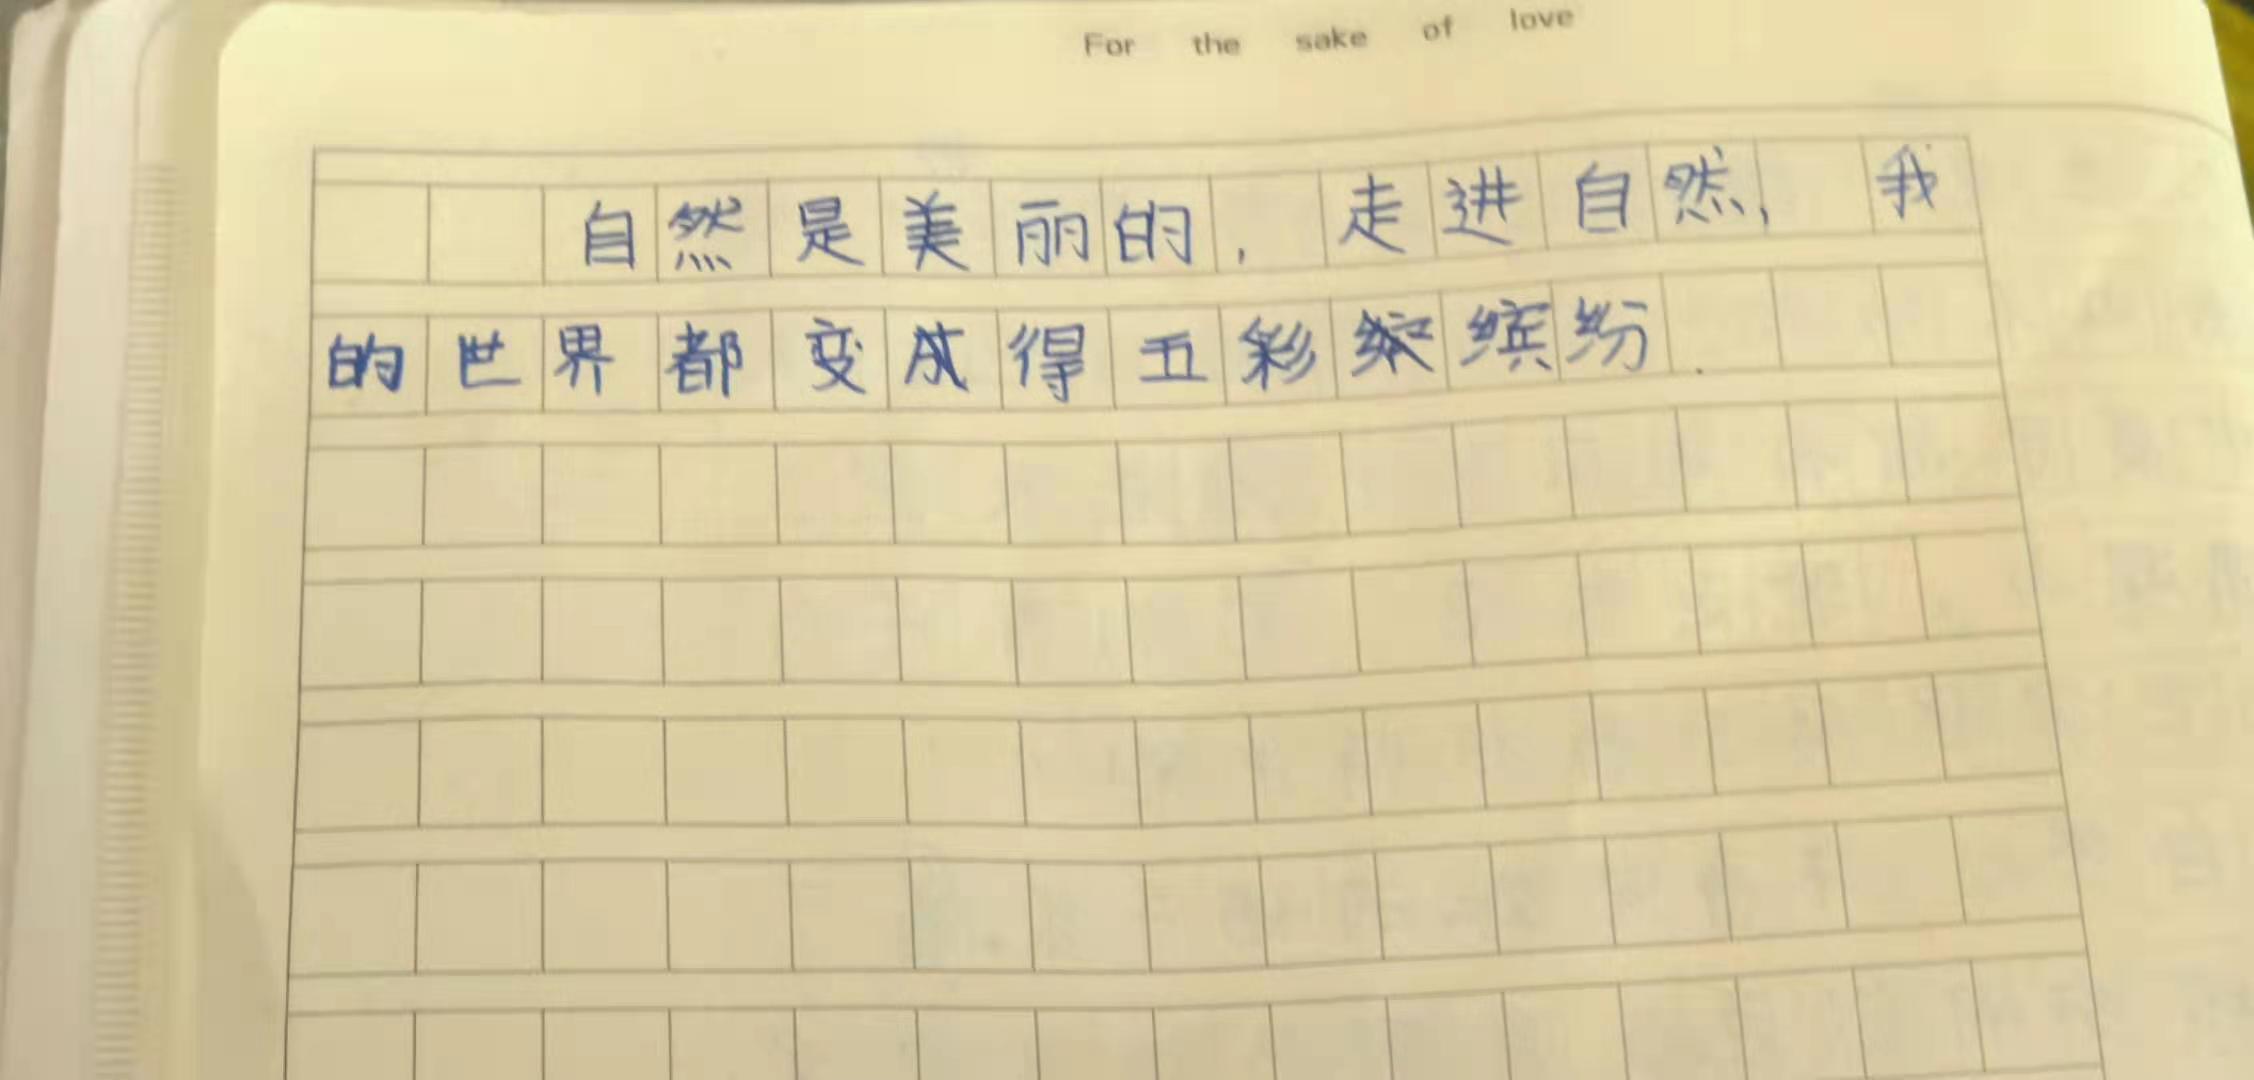 For the sake of love
自然是美丽的，走进自然，我
的世界都变得五彩缤纷.